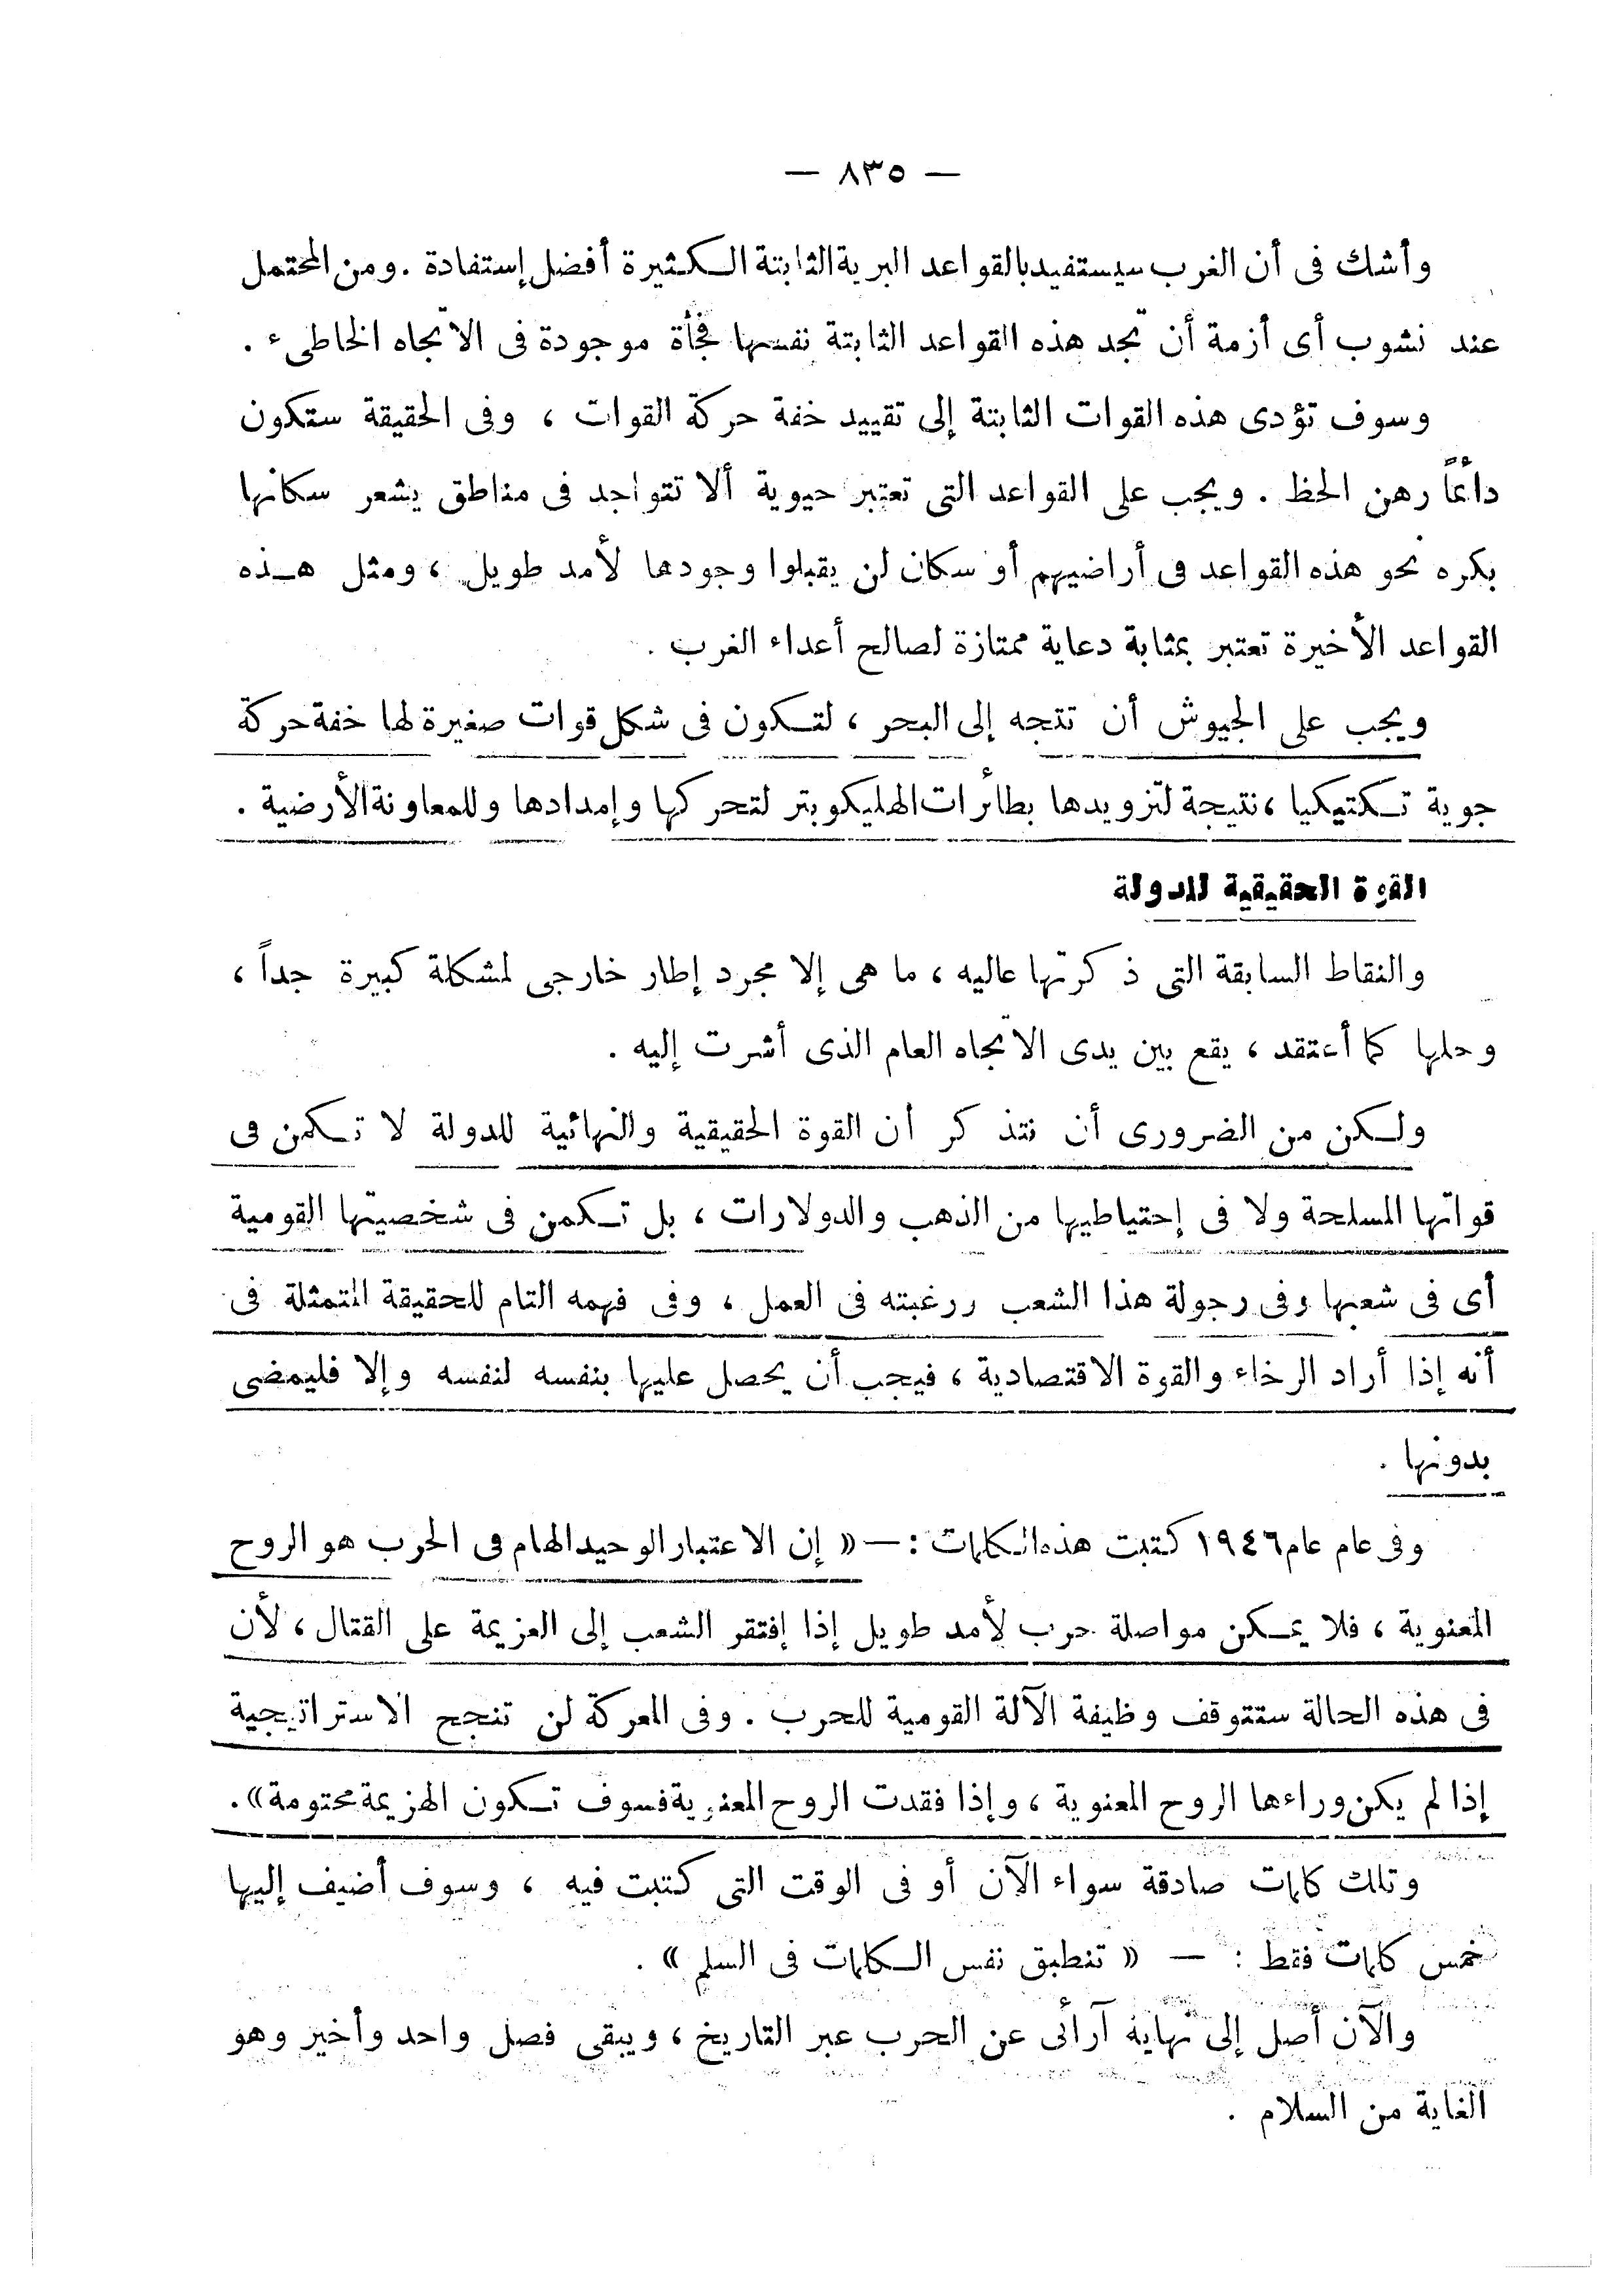 — ٨٣٥ —
وأشك فى أن الغرب سيستفيد بالقواعد البرية الثابتة الكثيرة أفضل إستفادة . ومن المحتمل
عند نشوب أى أزمة أن تجد هذه القواعد الثابتة نفسها فجأة موجودة فى الاتجاه الخاطىء .
وسوف تؤدى هذه القوات الثابتة إلى تقييد خفة حركة القوات ، وفى الحقيقة ستكون
دائماً رهن الحظ . ويجب على القواعد التى تعتبر حيوية ألا تتواجد فى مناطق يشعر سكانها
بكره نحو هذه القواعد فى أراضيهم أو سكان لن يقبلوا وجودها لأمد طويل ، ومثل هذه
القواعد الأخيرة تعتبر بمثابة دعاية ممتازة لصالح أعداء الغرب .
ويجب على الجيوش أن تتجه إلى البحر ، لتكون فى شكل قوات صغيرة لها خفة حركة
جوية تكتيكيا ، نتيجة لتزويدها بطائرات الهليكوبتر لتحركها وإمدادها وللمعاونة الأرضية .
القوة الحقيقية للدولة
والنقاط السابقة التى ذكرتها عاليه ، ما هى إلا مجرد إطار خارجى لمشكلة كبيرة جداً ،
وحلها كما أعتقد ، يقع بين يدى الاتجاه العام الذى أشرت إليه .
ولكن من الضرورى أن نتذكر أن القوة الحقيقية والنهائية للدولة لا تكمن فى
قواتها المسلحة ولا فى إحتياطيها من الذهب والدولارات ، بل تكمن فى شخصيتها القومية
أى فى شعبها وفى رجولة هذا الشعب ورغبته فى العمل ، وفى فهمه التام للحقيقة المتمثلة فى
أنه إذا أراد الرخاء والقوة الاقتصادية ، فيجب أن يحصل عليها بنفسه لنفسه وإلا فليمضى
بدونها .
وفى عام عام ١٩٤٦ كتبت هذه الكلمات : — « إن الاعتبار الوحيد الهام فى الحرب هو الروح
المعنوية ، فلا يمكن مواصلة حرب لأمد طويل إذا إفتقر الشعب إلى العزيمة على القتال ، لأن
فى هذه الحالة ستتوقف وظيفة الآلة القومية للحرب . وفى المعركة لن تنجح الاستراتيجية
إذا لم يكن وراءها الروح المعنوية ، وإذا فقدت الروح المعنوية فسوف تكون الهزيمة محتومة » .
وتلك كلمات صادقة سواء الآن أو فى الوقت التى كتبت فيه ، وسوف أضيف إليها
خمس كلمات فقط : — « تنطبق نفس الكلمات فى السلم » .
والآن أصل إلى نهاية آرائى عن الحرب عبر التاريخ ، ويبقى فصل واحد وأخير وهو
الغاية من السلام .